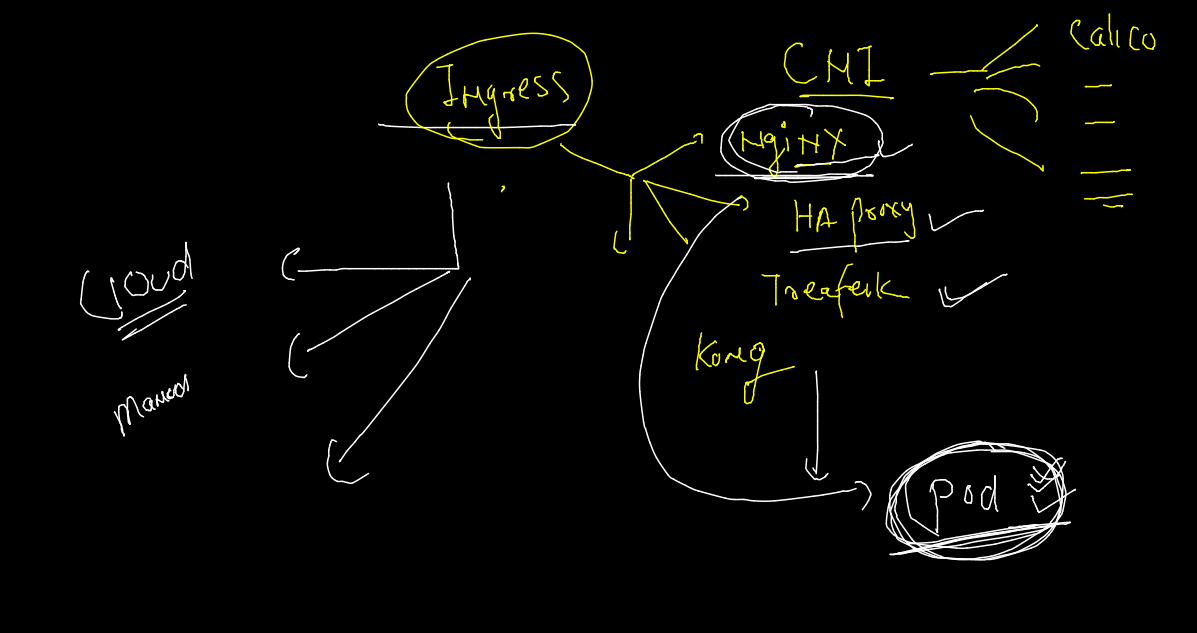 Ingress
CNI
Calico
NgiNX
HA Proxy
Treafeik
Kong
Cloud
Pod